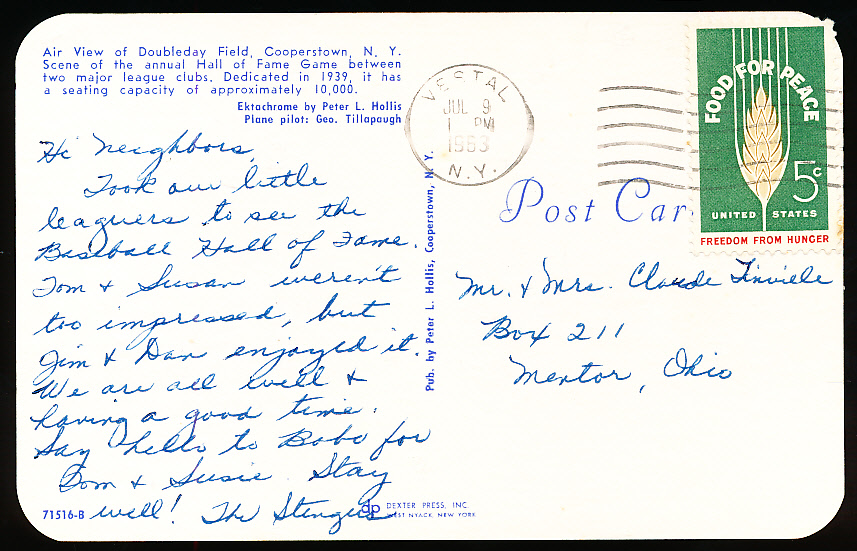 Air View of Doubleday Field, Cooperstown, N. Y.
Scene of the annual Hall of Fame Game between
two major league clubs. Dedicated in 1939, it has
a seating capacity of approximately 10,000.
Ektachrome by Peter L. Hollis
Plane pilot: Geo. Tillapaugh
Hi Neighbors,
Took our little
leaguers to see the
Baseball Hall of Fame.
Tom & Susan weren't
too impressed, but
Jim & Dan enjoyed it.
We are all well &
having a good time.
Say hello to Bobo for
Tom & Susie. Stay
well! The
71516-B
dp DEXTER PRESS, INC.
WEST NYACK, NEW YORK
Pub. by Peter L. Hollis, Cooperstown, N. Y.
VESTAL
JUL 9
PM
1963
N.Y.
Post Car
FOOD FOR PEACE
5c
UNITED STATES
FREEDOM FROM HUNGER
Mr. & Mrs. Claude
Box 211
Mentor, Ohio